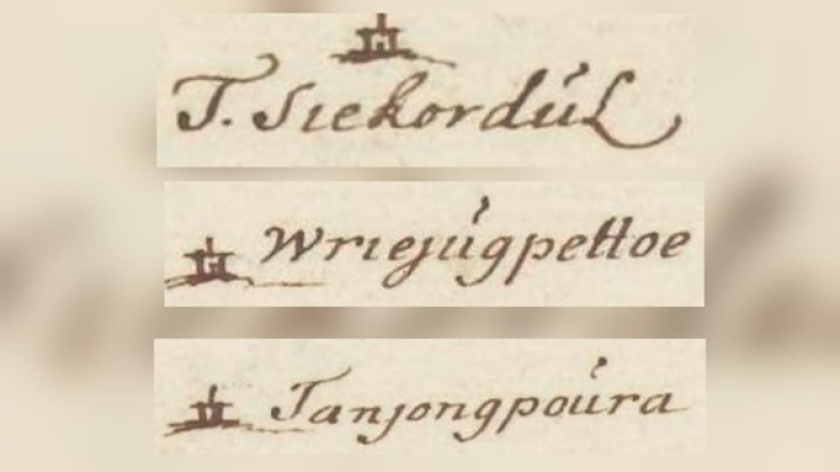 T. Siekordúl
Wriejúgpettoe
Tanjongpoúra